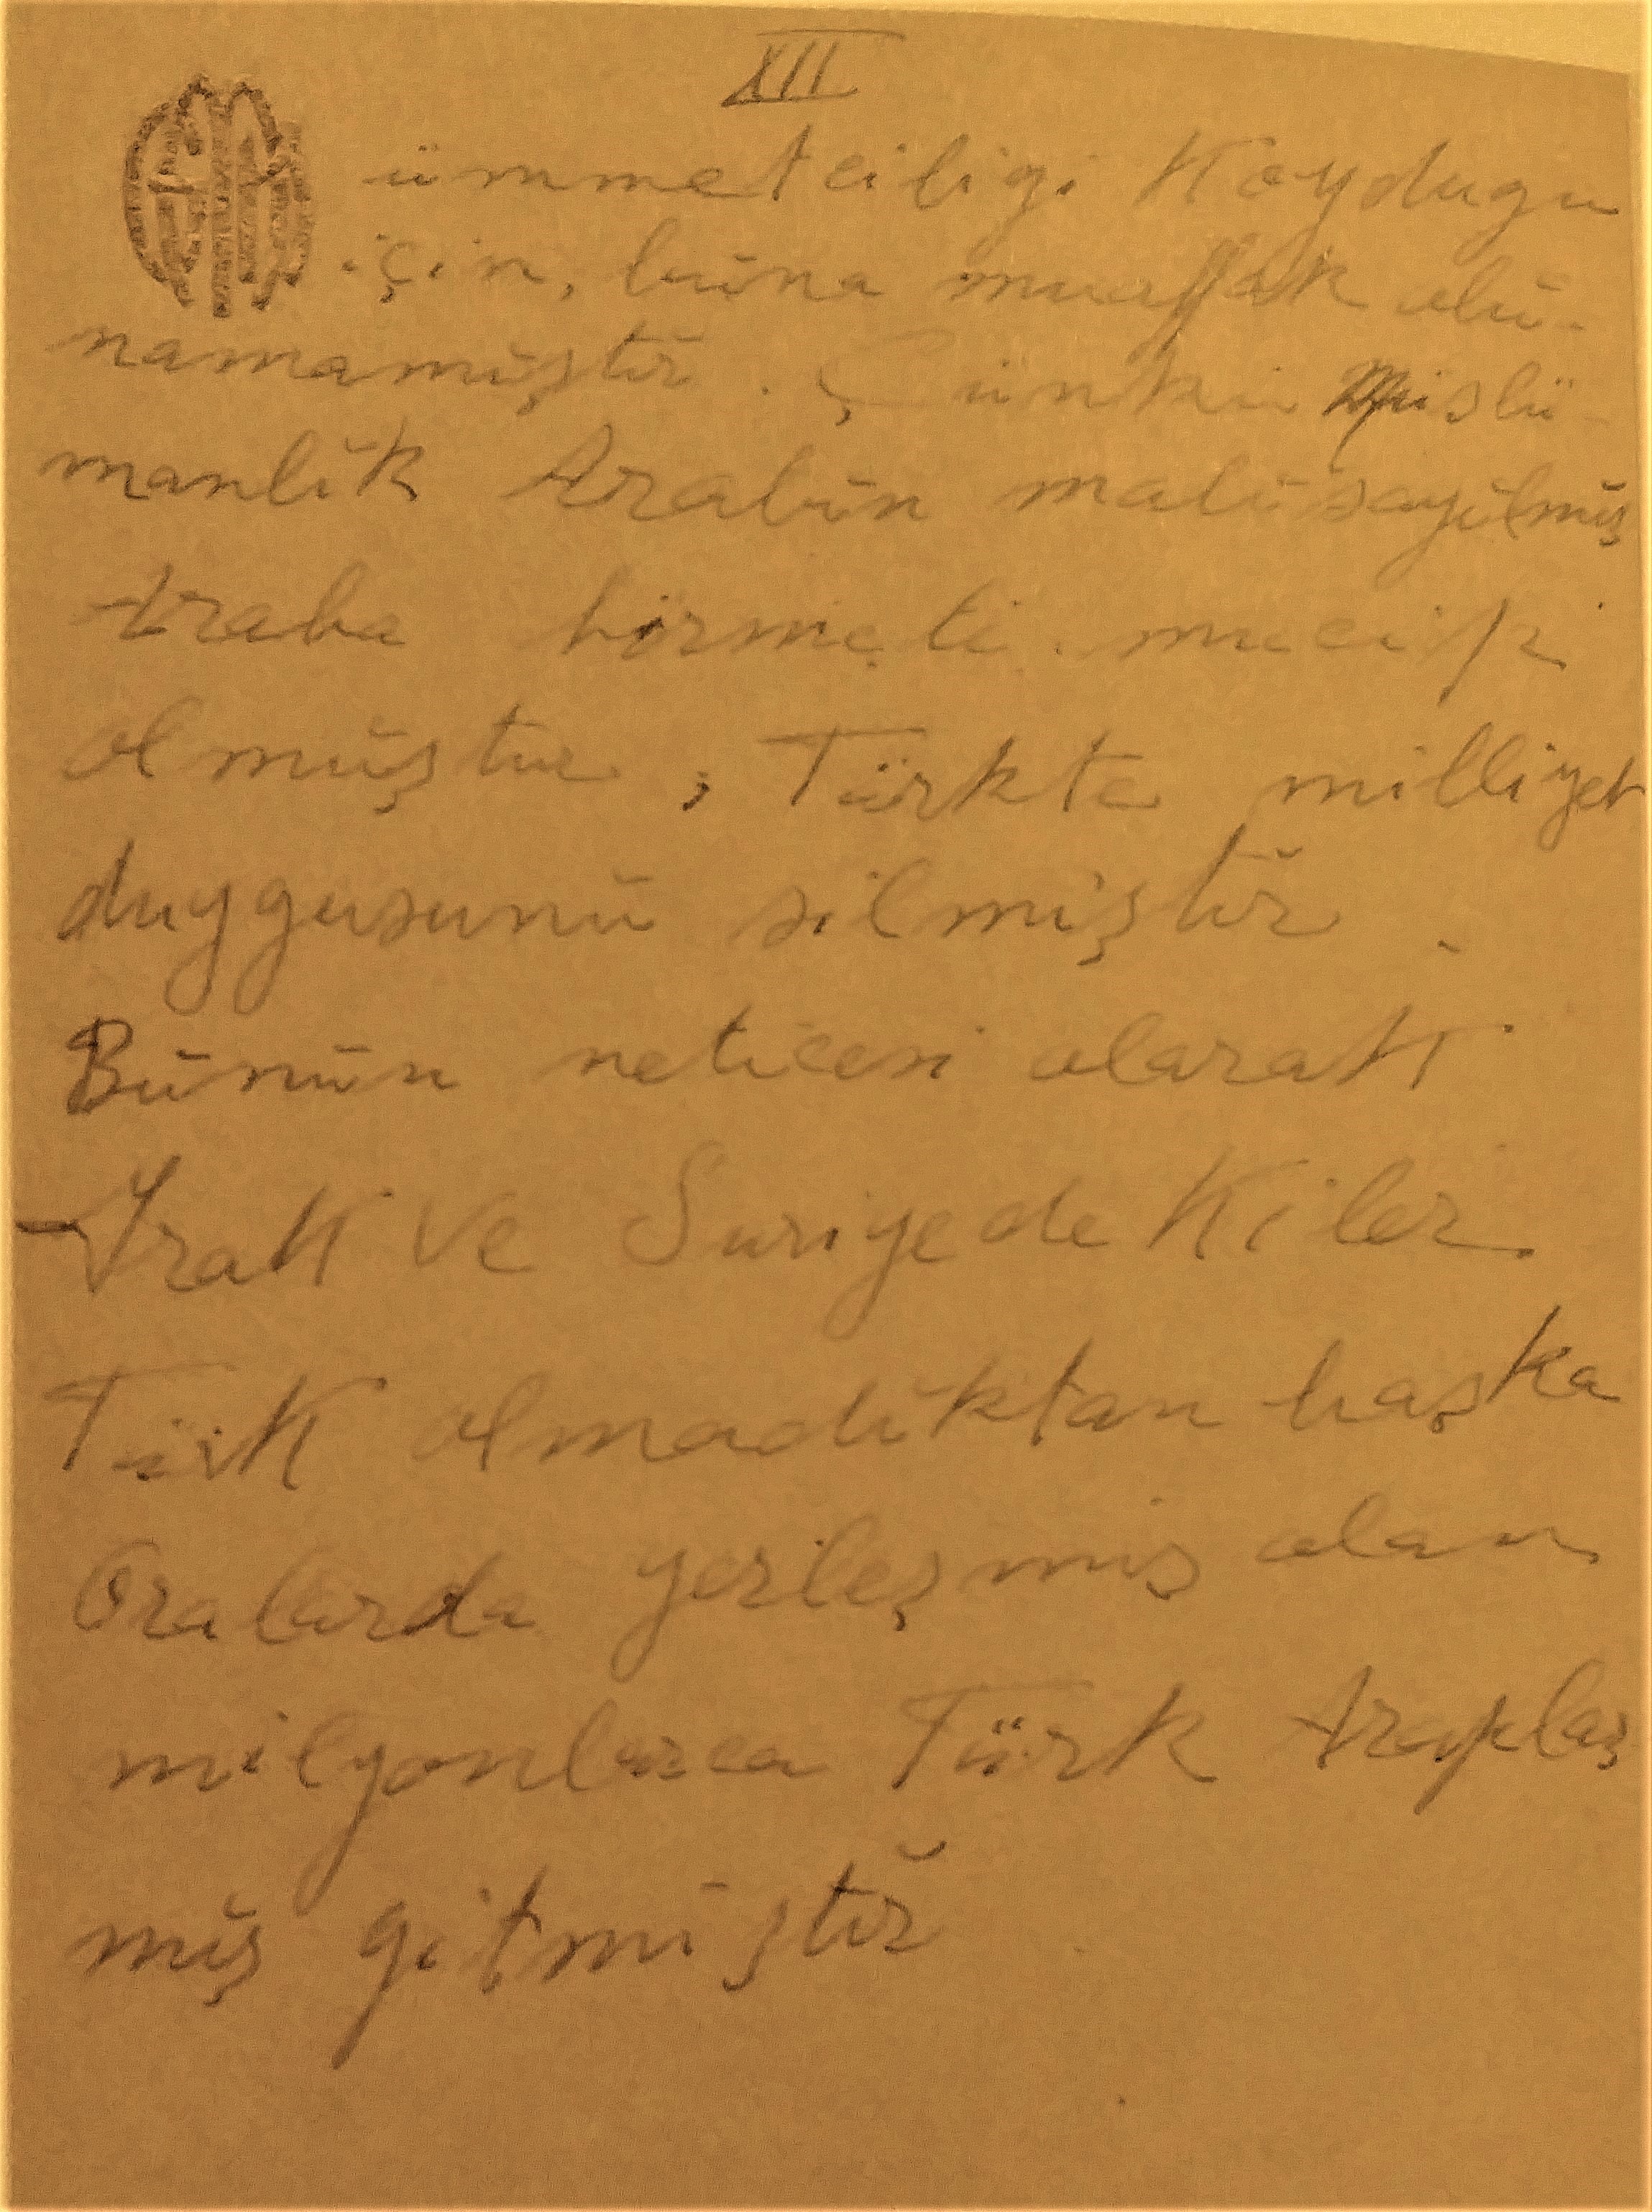 XII
ümmetciligi Koydugu
için, buna muaffak olu-
namamıştır. Çünkü Müslü-
manlık Arabın malı sayılmış
Araba hörmeti mucip
olmuştur; Türkte milliyet
duygusunu silmiştir.
Bunun neticesi olarak
Irak ve Suriyedekiler
Türk olmadıktan başka
Oralarda yerleşmiş olan
milyonlarca Türk Araplaş
mış gitmiştir